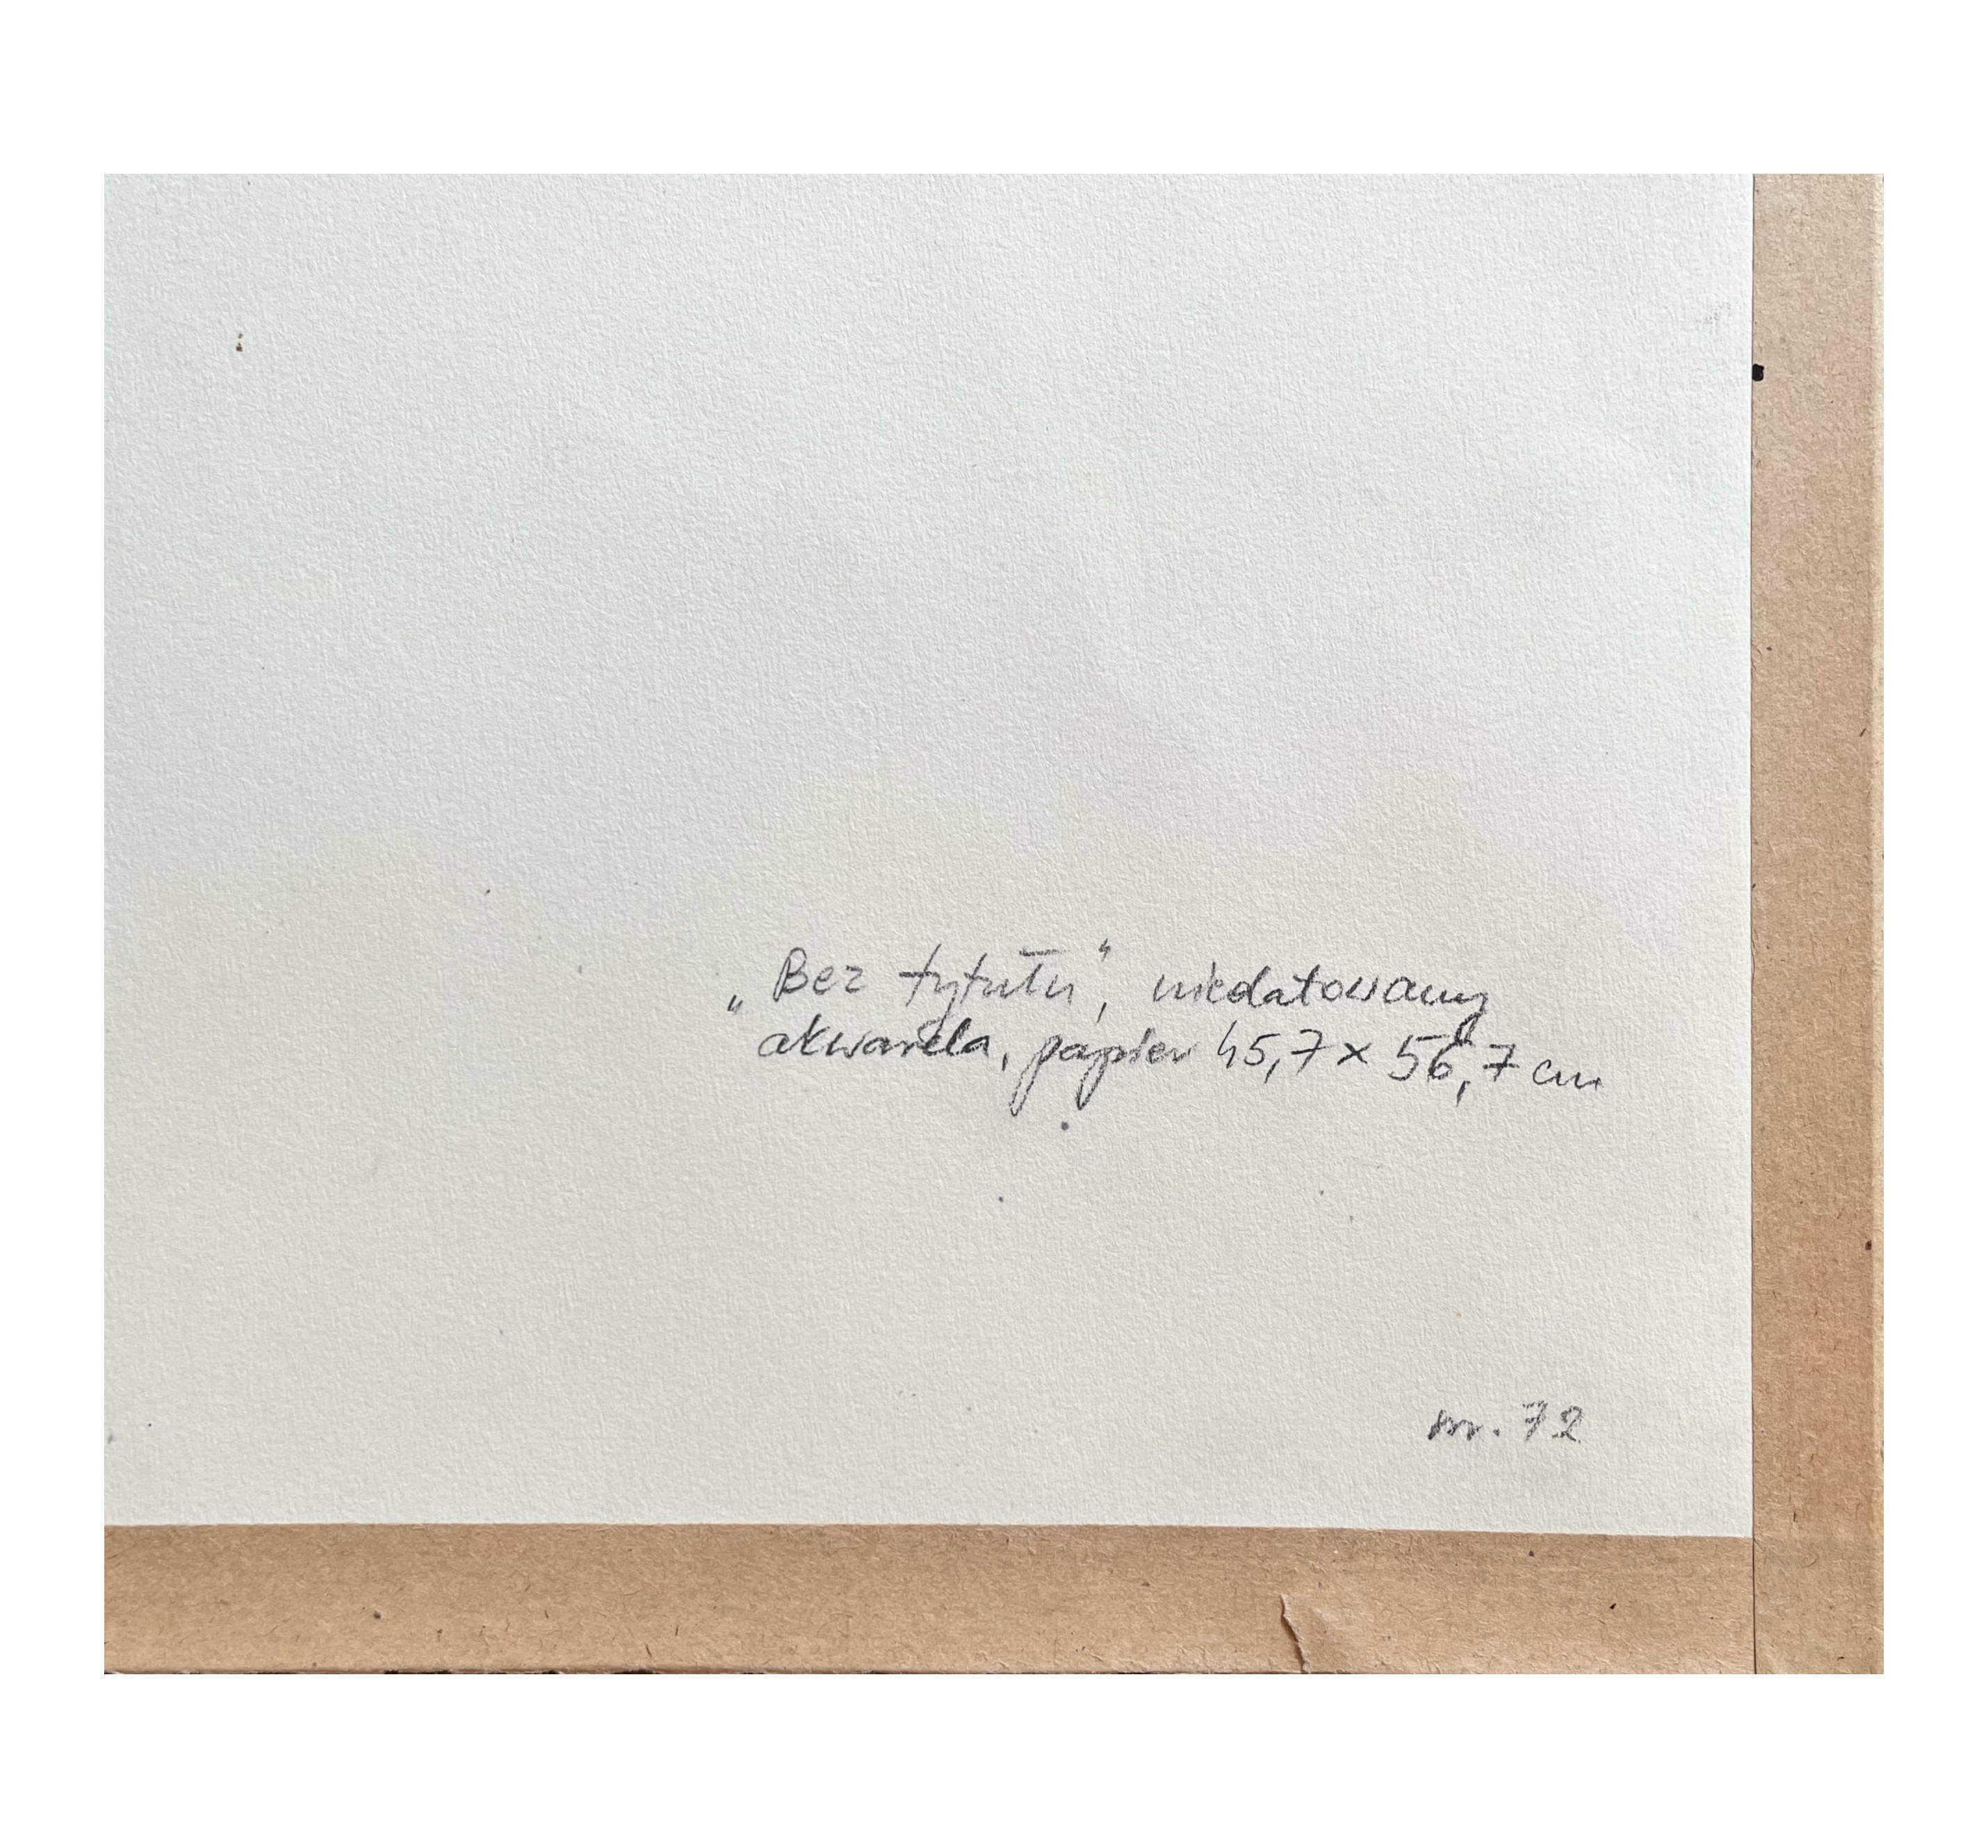 „Bez tytułu”, niedatowany
akwarela, papier 45,7 x 56,7 cm
nr. 72